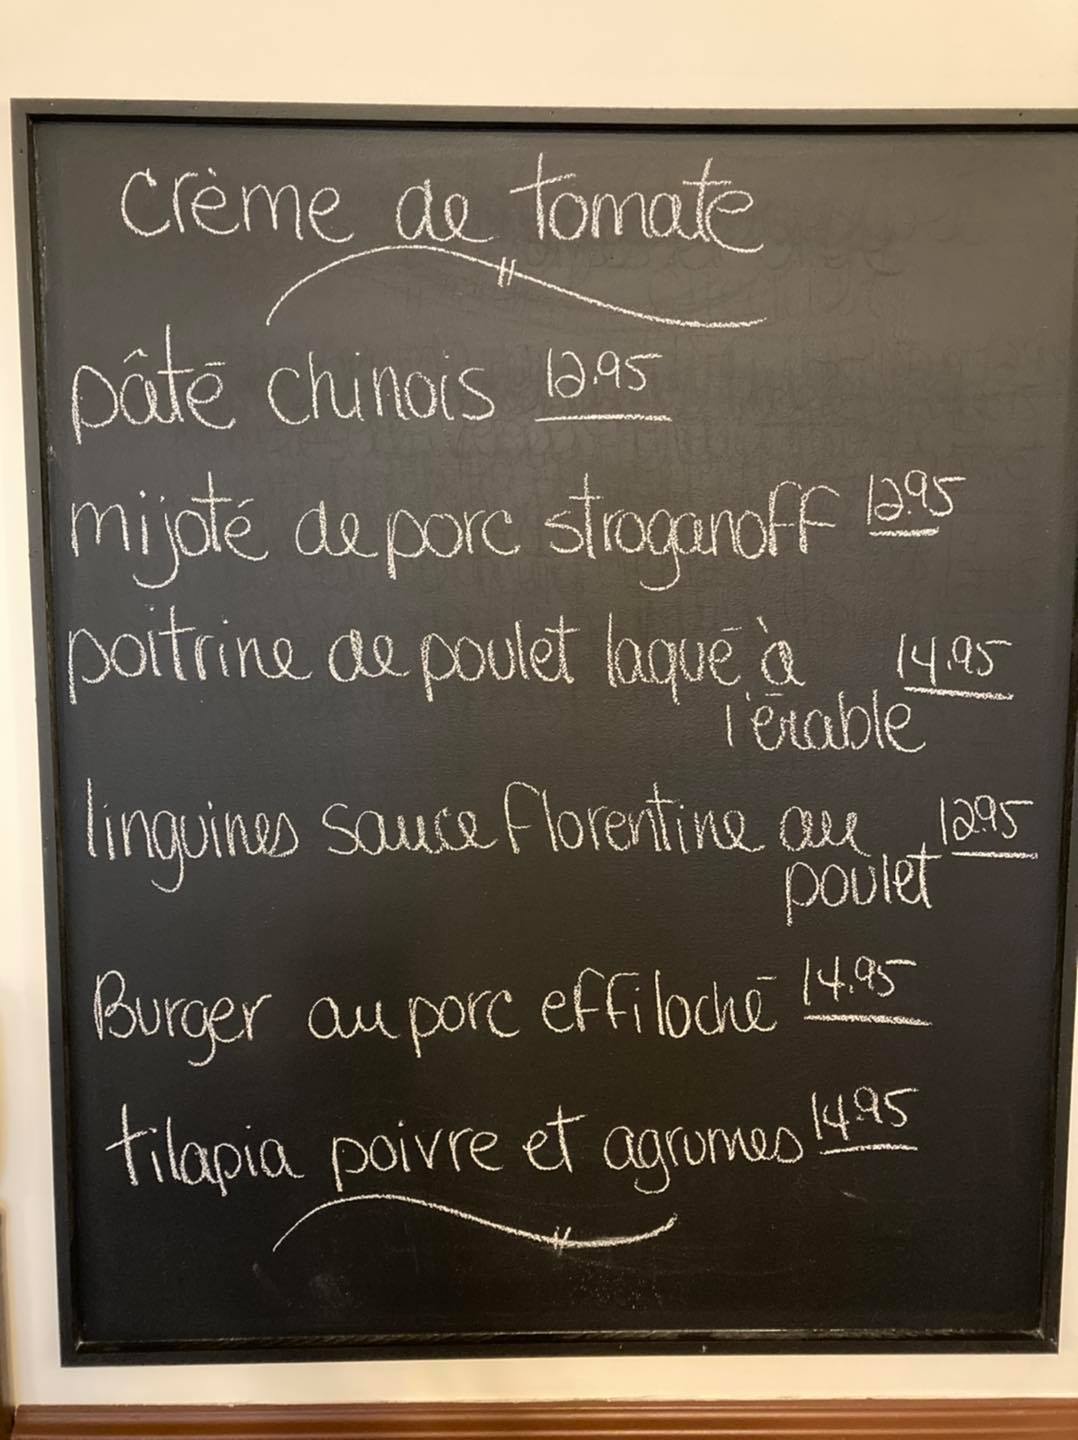 crème de tomate
pâté chinois 12.95
mijoté de porc stroganoff 12.95
poitrine de poulet laqué à 14.95
l'érable
linguines sauce florentine au 12.95
poulet
Burger au porc effiloché 14.95
tilapia poivre et agrumes 14.95